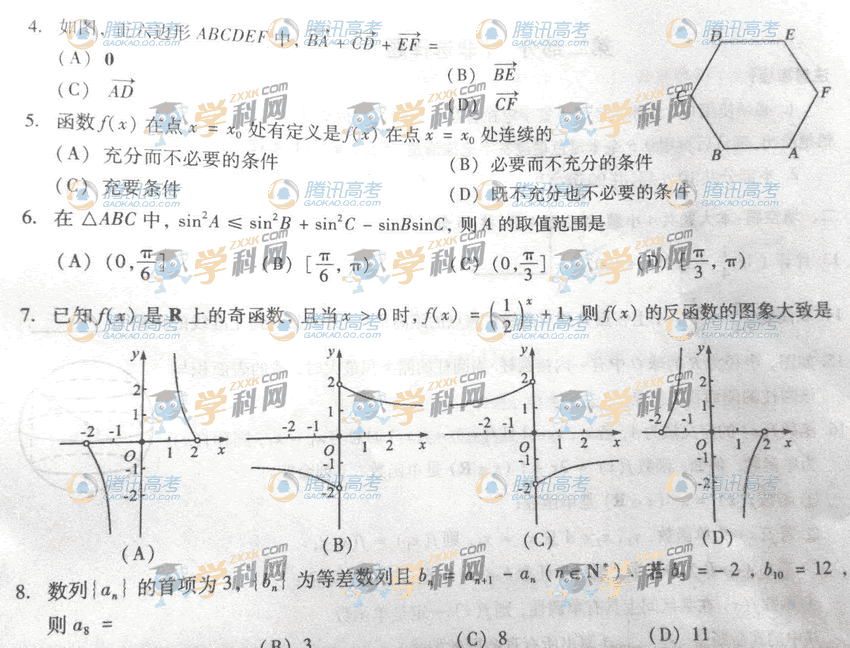 4. 如图, 正六边形 ABCDEF 中, BA + CD + EF =
(A) 0
(B) BE
(C) AD
(D) CF
D E
C F
B A
5. 函数 f(x) 在点 x = x₀ 处有定义是 f(x) 在点 x = x₀ 处连续的
(A) 充分而不必要的条件
(B) 必要而不充分的条件
(C) 充要条件
(D) 既不充分也不必要的条件
6. 在 △ABC 中, sin²A ≤ sin²B + sin²C - sinBsinC, 则 A 的取值范围是
(A) (0, π/6]
(B) [π/6, π)
(C) (0, π/3]
(D) [π/3, π)
7. 已知 f(x) 是 R 上的奇函数, 且当 x > 0 时, f(x) = (1/2)ˣ + 1, 则 f(x) 的反函数的图象大致是
y 2 1 -2 -1 O 1 2 x -1 -2
(A)
y 2 1 -2 -1 O 1 2 x -1 -2
(B)
y 2 1 -2 -1 O 1 2 x -1 -2
(C)
y 2 1 -2 -1 O 1 2 x -1 -2
(D)
8. 数列{aₙ} 的首项为 3, {bₙ} 为等差数列且 bₙ = aₙ₊₁ - aₙ (n∈N*). 若 b₃ = -2, b₁₀ = 12,
则 a₈ =
(B) 3
(C) 8
(D) 11
腾讯高考
GAOKAO.QQ.COM
学科网
ZXXK.COM